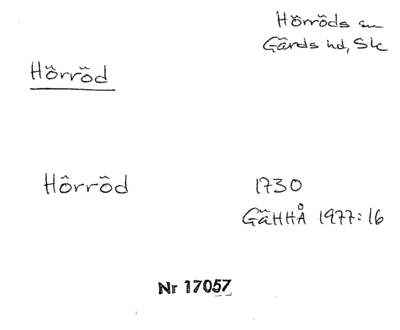 Hörröds sn
Gärds hd, Sk
Hörröd
Hörröd 1730
GäHHÅ 1977:16
Nr 17057